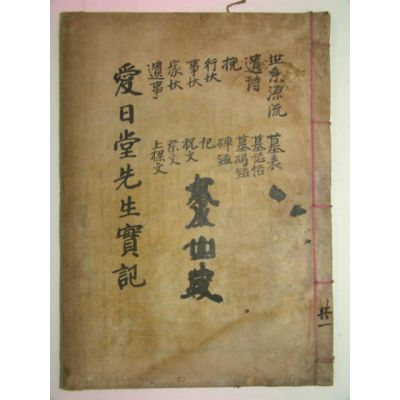 世系源流
遺詩
挽
行狀
事狀
家狀
遺事
墓表
墓誌銘
墓碣銘
碑銘
記
祝文
祭文
上樑文
愛日堂先生實記
共一